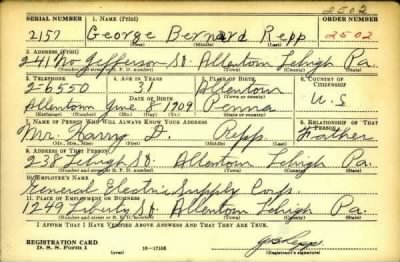 2502
SERIAL NUMBER 1. NAME (Print) ORDER NUMBER
2157 George Bernard Repp 2502
(First) (Middle) (Last)
2. ADDRESS (Print)
241 No Jefferson St. Allentown Lehigh Pa.
(Number and street or R. F. D. number) (Town) (County) (State)
3. TELEPHONE 4. AGE IN YEARS 5. PLACE OF BIRTH 6. COUNTRY OF CITIZENSHIP
2-6550 31 Allentown
(Town or county)
DATE OF BIRTH U.S
Allentown June 5 1909 Penna
(Exchange) (Number) (Mo.) (Day) (Yr.) (State or country)
7. NAME OF PERSON WHO WILL ALWAYS KNOW YOUR ADDRESS 8. RELATIONSHIP OF THAT PERSON
Mr. D. Repp Father
(Mr., Mrs., Miss) (First) (Middle) (Last)
9. ADDRESS OF THAT PERSON
238 Lehigh St. Allentown Lehigh Pa.
(Number and street or R. F. D. number) (Town) (County) (State)
10. EMPLOYER'S NAME
General Electric Supply Corp.
11. PLACE OF EMPLOYMENT OR BUSINESS
1249 Liberty St Allentown Lehigh Pa.
(Number and street or R. F. D. number) (Town) (County) (State)
I AFFIRM THAT I HAVE VERIFIED ABOVE ANSWERS AND THAT THEY ARE TRUE.
REGISTRATION CARD
D. S. S. Form 1 (over) 16-17105
(Registrant's signature)